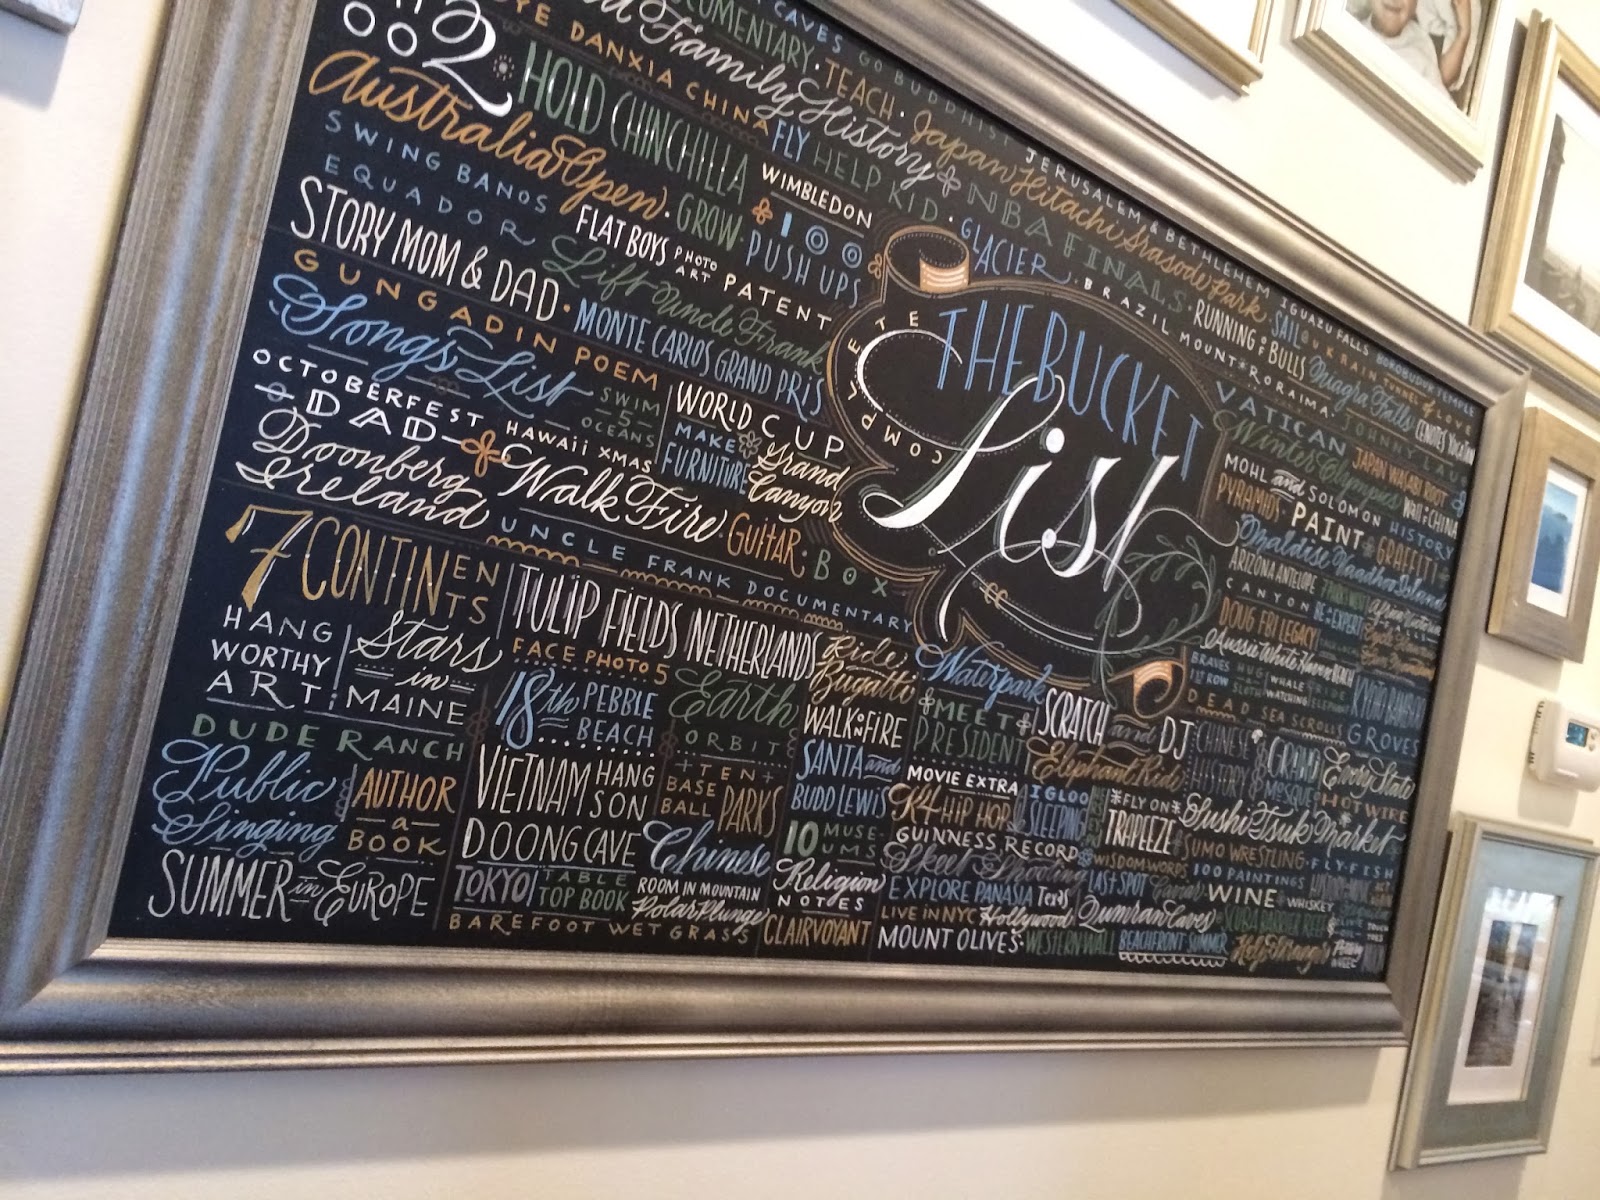 2
CAVES
DOCUMENTARY · TEACH ·
Family History
DANXIA CHINA
HOLD CHINCHILLA
FLY HELP KID ·
Australia Open ·
SWING BANOS
EQUADOR
GROW ·
WIMBLEDON
100
PUSH UPS
FLAT BOYS PHOTO ART PATENT
STORY MOM & DAD ·
Lift Uncle Frank
GUNGADIN POEM
MONTE CARLOS GRAND PRIS
Songs List
SWIM
-5-
OCEANS
WORLD CUP
OCTOBERFEST
-DAD-
HAWAII XMAS
MAKE
FURNITURE
Grand
Canyon
Doonberg
Ireland
Walk Fire ·
GUITAR · BOX
UNCLE FRANK DOCUMENTARY
7 CONTINENTS
COMPLETE
THE BUCKET
List
Japan Hitachi
Park ·
JERUSALEM & BETHLEHEM
IGUAZU FALLS
BOROBUDUR TEMPLE
NBA FINALS ·
GLACIER ·
BRAZIL MOUNT RORAIMA ·
RUNNING OF BULLS
SAIL
UKRAIN TUNNEL OF LOVE
Niagra Falls
VATICAN
JOHNNY
Winter Olympics
MOHL and SOLOMON HISTORY
WALL OF CHINA
PYRAMIDS · PAINT
GRAFFITI
ARIZONA ANTELOPE
CANYON
DOUG FRI LEGACY
BRAVES
1ST ROW
HUG
SLOTH
WHALE
WATCHING
RIDE
DEAD SEA SCROLLS
GROVES
HANG
WORTHY
ART ;
Stars
in
MAINE
TULIP FIELDS NETHERLANDS
FACE PHOTO 5
18th PEBBLE
BEACH
Earth
ORBIT
Ride
Bugatti
WALK ON FIRE
SANTA and
BUDD LEWIS
Waterpark
MEET
PRESIDENT
SCRATCH and DJ
CHINESE
HISTORY
GRAND
MOSQUE
Every State
HOT WIRE
DUDE RANCH
Public
Singing
AUTHOR
-a-
BOOK
VIETNAM HANG
SON
DOONG CAVE
+TEN+
BASE
BALL
PARKS
Chinese
10 MUSE-
UMS
MOVIE EXTRA
K4 HIP HOP
GUINNESS RECORD
Skeet Shooting
Elephant Ride
IGLOO
SLEEPING
FLY ON
TRAPEEZE
Sushi Tsuk Market
SUMO WRESTLING
FLY-FISH
WISDOM WORDS
100 PAINTINGS
SUMMER in EUROPE
TOKYO
TABLE
TOP BOOK
ROOM IN MOUNTAIN
Polar Plunge
BAREFOOT WET GRASS
Religion
NOTES
CLAIRVOYANT
EXPLORE PANASIA
LAST SPOT
Caviar
WINE
WHISKEY
LIVE IN NYC
Hollywood
Qumran Caves
MOUNT OLIVES ·
WESTERN WALL
BEACHFRONT SUMMER
Help Stranger